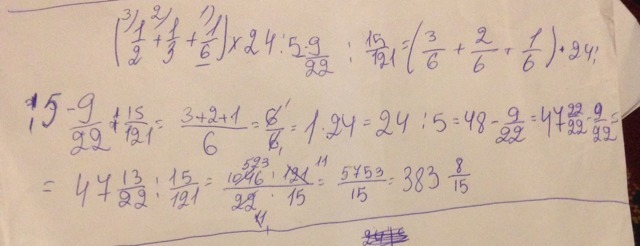 3) 2) 1)
(1/2 + 1/3 + 1/6) × 24 : 5 - 9/22 : 15/121 = (3/6 + 2/6 + 1/6) · 24 :
: 5 - 9/22 : 15/121 = (3+2+1)/6 = 6/6 = 1 · 24 = 24 : 5 = 48 - 9/22 = 47 22/22 - 9/22 =
= 47 13/22 : 15/121 = (1046 523 · 121 11)/(22 · 15) = 5753/15 = 383 8/15